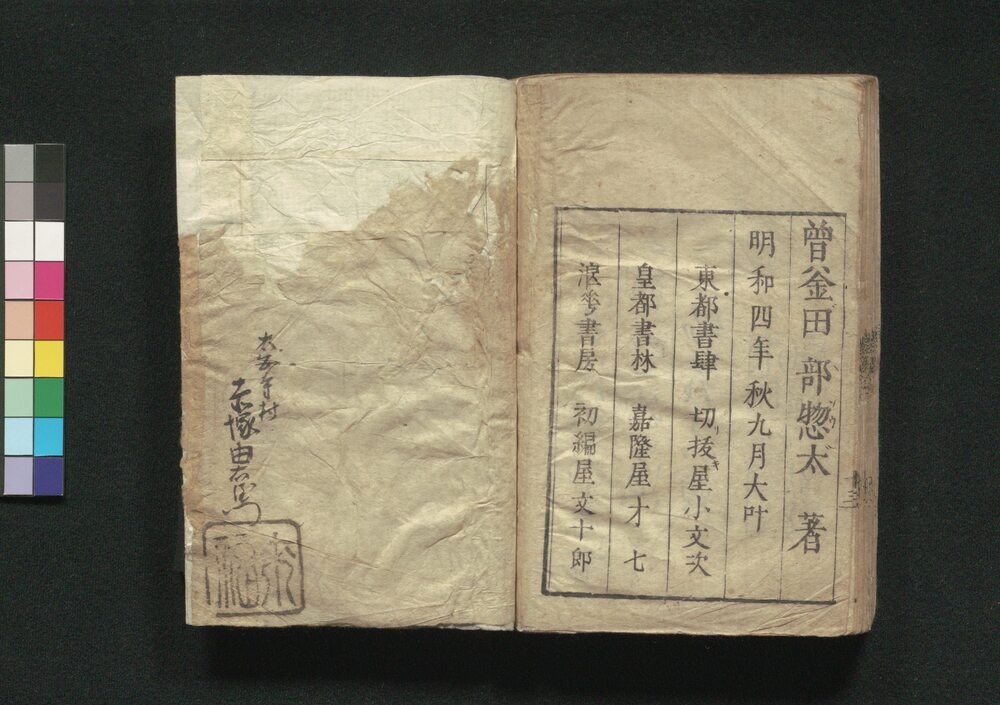 曾釜田部惣太 著
明和四年秋九月大叶
東都書肆 切抜屋小文次
皇都書林 嘉隆屋才七
浪花書房 初編屋文十郎
赤塚由右衛門